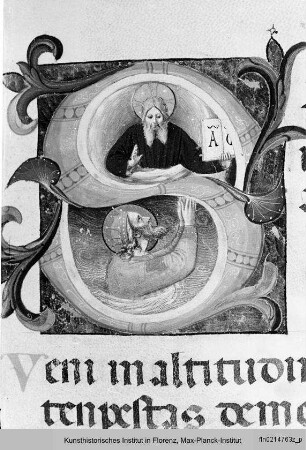 A
Veni in altitudin
tempestas demer
Kunsthistorisches Institut in Florenz, Max-Planck-Institut
fln0214763z_p